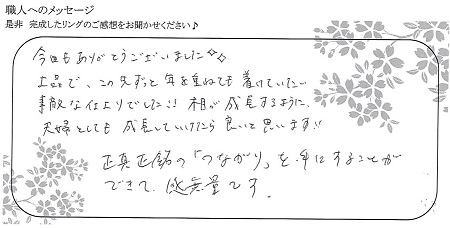 職人へのメッセージ
是非 完成したリングのご感想をお聞かせください♪
今回もありがとうございました✧✧
上品で、この先ずっと年を重ねても着けていたい
素敵な仕上りでした!! 樹が成長するように、
夫婦としても成長していけたら良いと思います!!
正真正銘の「つながり」を手にすることが
できて、感無量です。